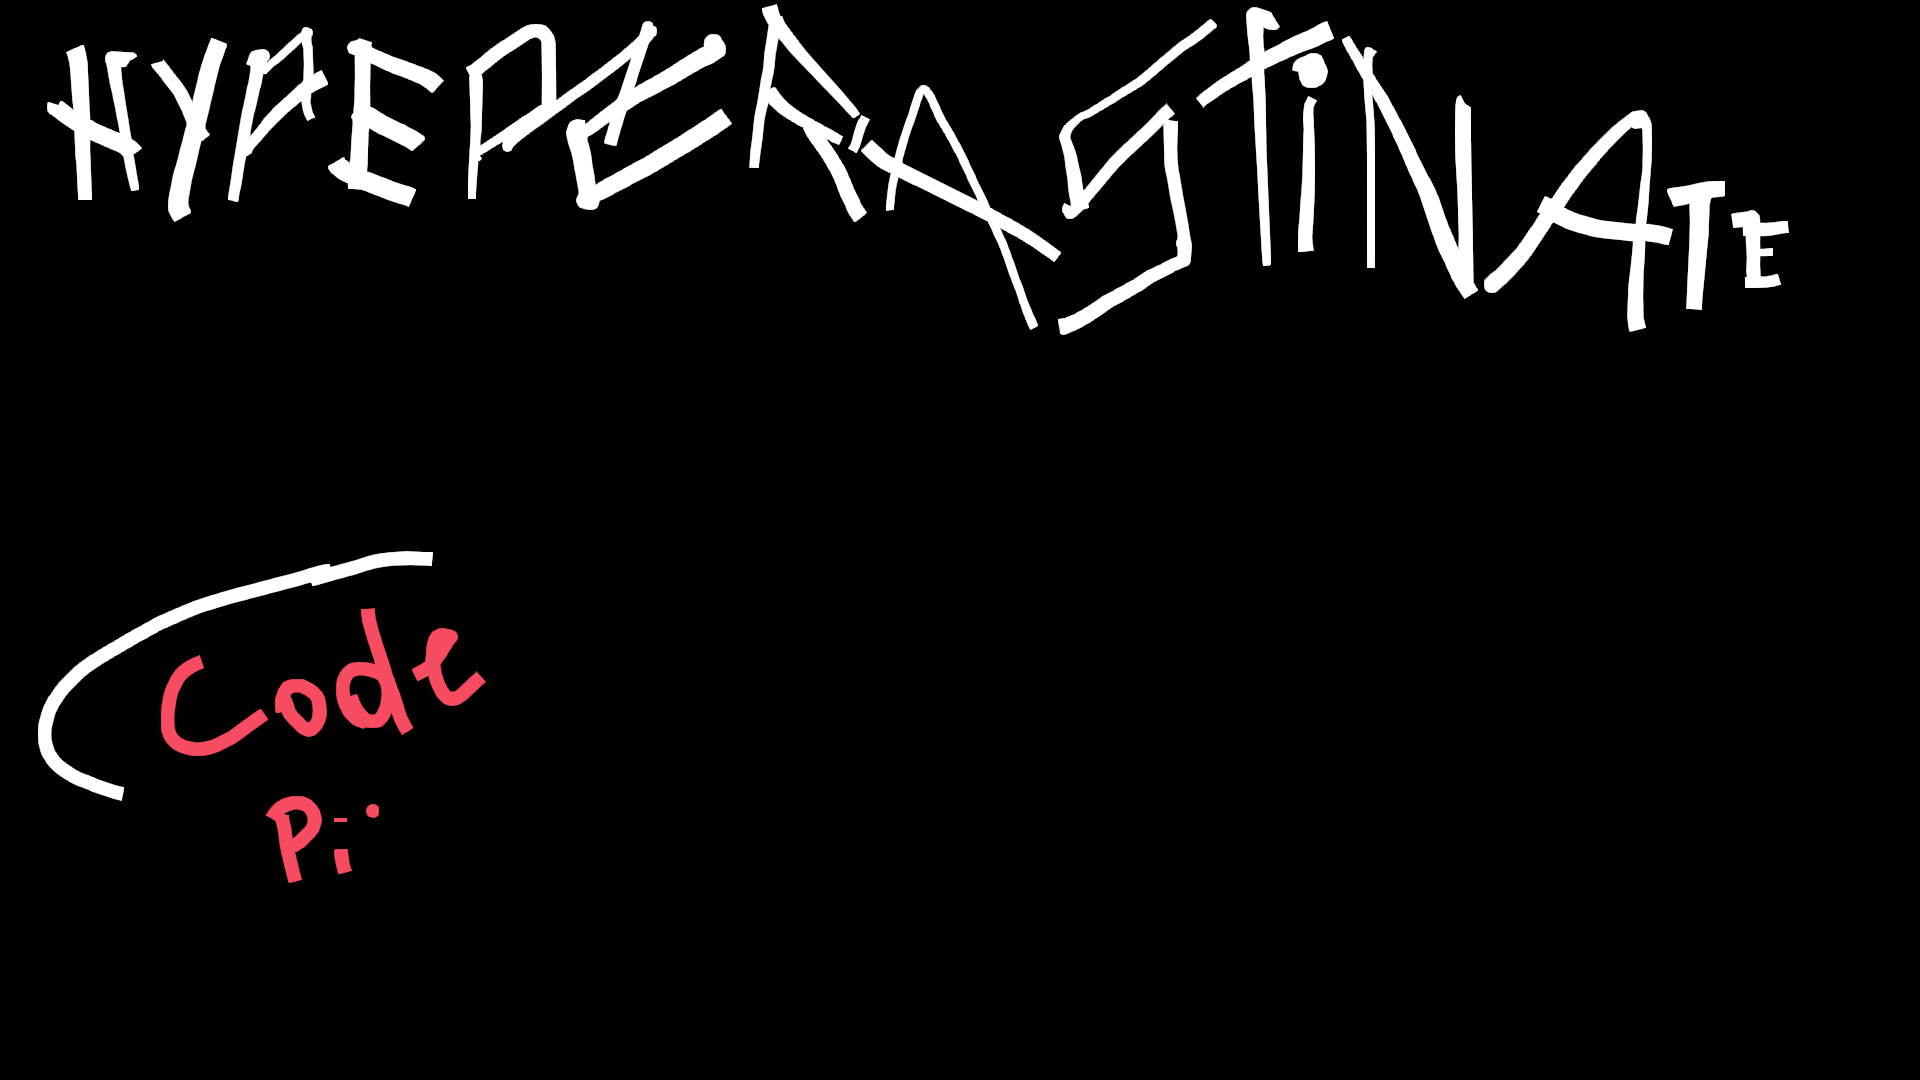 HYPERCRASTiNATE
Code
Pi